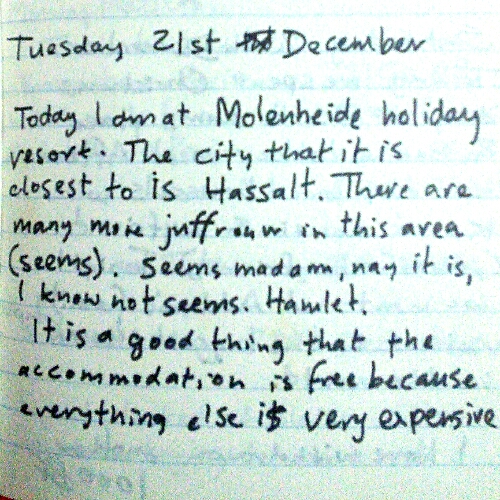 Tuesday 21st December
Today I am at Molenheide holiday
resort. The city that it is
closest to is Hassalt. There are
many more juffrouw in this area
(seems). Seems madam, nay it is,
I know not seems. Hamlet.
It is a good thing that the
accommodation is free because
everything else is very expensive